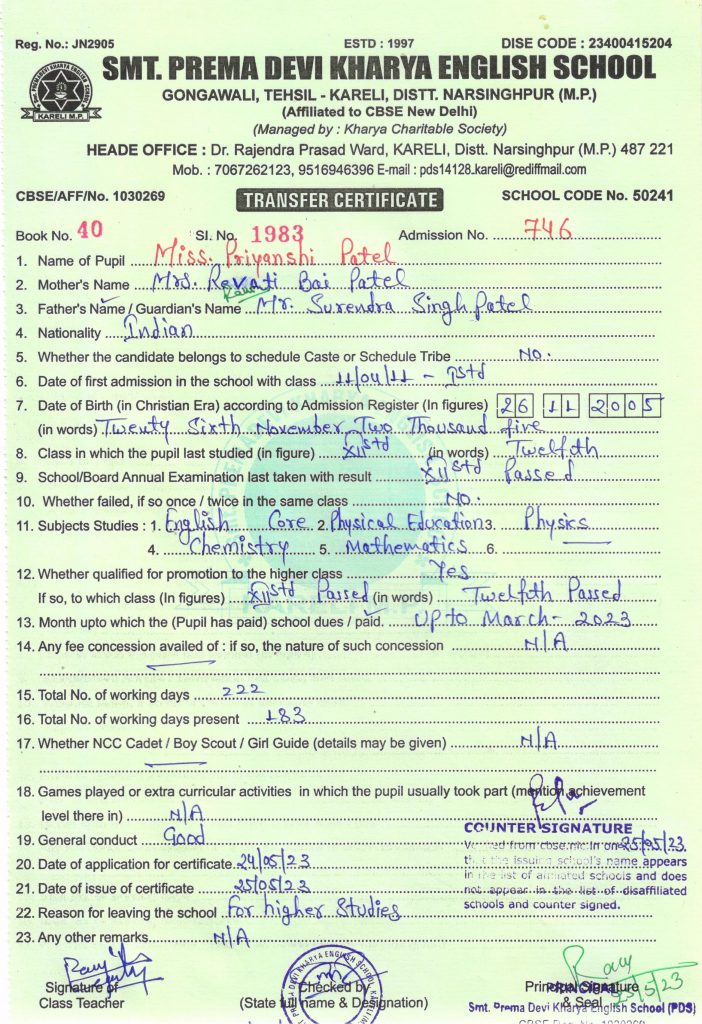 Reg. No.: JN2905 ESTD : 1997 DISE CODE : 23400415204
SMT. PREMA DEVI KHARYA ENGLISH SCHOOL
KARELI M.P.
GONGAWALI, TEHSIL - KARELI, DISTT. NARSINGHPUR (M.P.)
(Affiliated to CBSE New Delhi)
(Managed by : Kharya Charitable Society)
HEADE OFFICE : Dr. Rajendra Prasad Ward, KARELI, Distt. Narsinghpur (M.P.) 487 221
Mob. : 7067262123, 9516946396 E-mail : pds14128_kareli@rediffmail.com
CBSE/AFF/No. 1030269 TRANSFER CERTIFICATE SCHOOL CODE No. 50241
Book No. 40 Sl. No. 1983 Admission No. 746
1. Name of Pupil Miss. Priyanshi Patel
2. Mother's Name Mrs. Revati Bai Patel
3. Father's Name / Guardian's Name Mr. Surendra Singh Patel
4. Nationality Indian
5. Whether the candidate belongs to schedule Caste or Schedule Tribe NO.
6. Date of first admission in the school with class 11/04/11 - Istd
7. Date of Birth (in Christian Era) according to Admission Register (In figures) 26 11 2005
(in words) Twenty Sixth November Two Thousand five
8. Class in which the pupil last studied (in figure) XII std (in words) Twelfth
9. School/Board Annual Examination last taken with result XII std Passed
10. Whether failed, if so once / twice in the same class NO.
11. Subjects Studies : 1. English Core 2. Physical Education 3. Physics
4. Chemistry 5. Mathematics 6.
12. Whether qualified for promotion to the higher class Yes
If so, to which class (In figures) XII std Passed (in words) Twelfth Passed
13. Month upto which the (Pupil has paid) school dues / paid. Up to March - 2023
14. Any fee concession availed of : if so, the nature of such concession N/A
15. Total No. of working days 222
16. Total No. of working days present 183
17. Whether NCC Cadet / Boy Scout / Girl Guide (details may be given) N/A
18. Games played or extra curricular activities in which the pupil usually took part (mention achievement
level there in) N/A
COUNTER SIGNATURE
19. General conduct Good
from cbse.nic.in on 25/05/23
20. Date of application for certificate 24/05/23
the issuing school's name appears
21. Date of issue of certificate 25/05/23
in the list of affiliated schools and does
not appear in the list of disaffiliated
22. Reason for leaving the school For higher Studies
schools and counter signed.
23. Any other remarks N/A
Signature of
Class Teacher
Checked by
(State full name & Designation)
Principal Signature
& Seal
PRINCIPAL
25/5/23
Smt. Prema Devi Kharya English School (PDS)